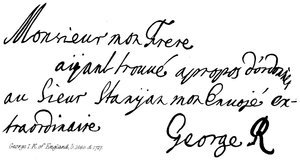 Monsieur mon Frere
aijant trouvé apropos d'ordoner
au Sieur Stanijan mon Envojé ex-
traordinaire
George R
George I. K. of England, b. 1660 d. 1727